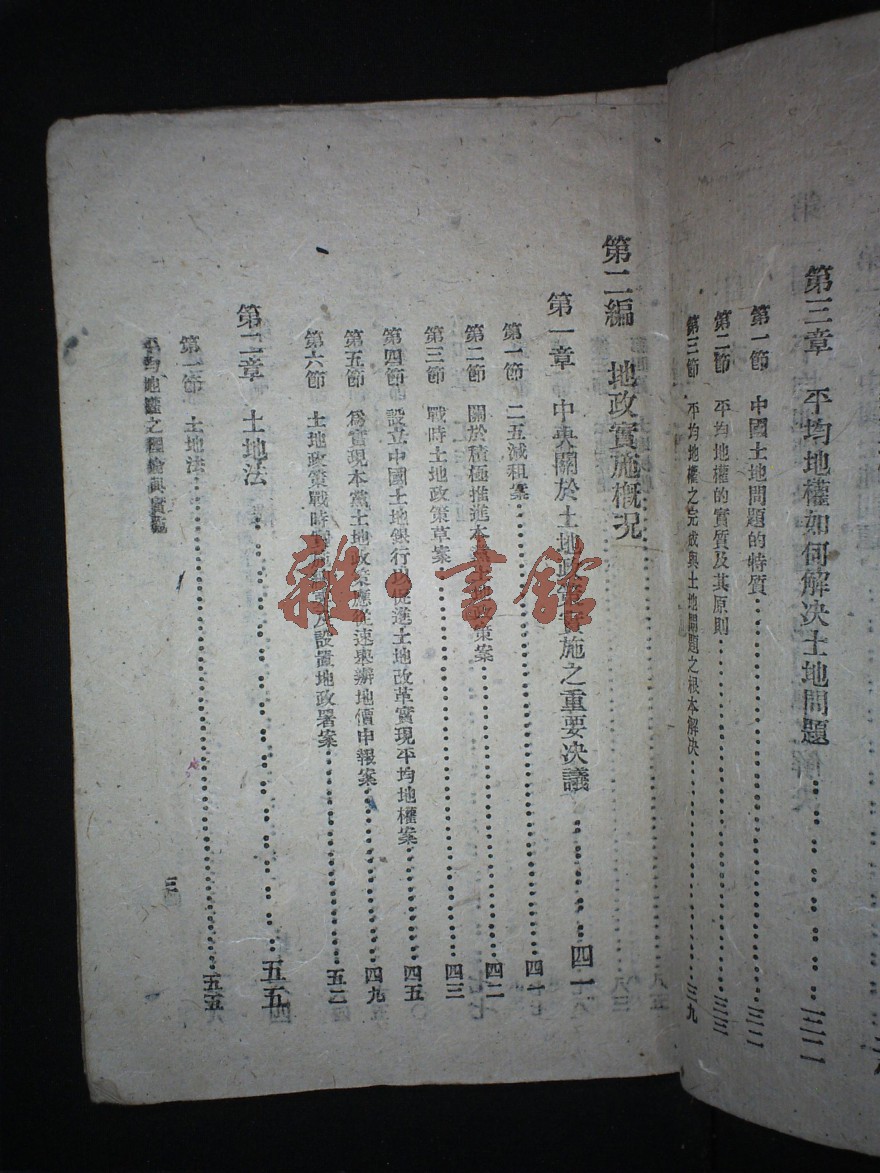 第三章　平均地權如何解决土地問題…………三二
第一節　中國土地問題的特質…………三二
第二節　平均地權的實質及其原則…………三三
第三節　平均地權之完成與土地問題之根本解决…………三九
第二編　地政實施概况
第一章　中央關於土地政策實施之重要决議…………四一
第一節　二五減租案…………四一
第二節　關於積極推進本黨土地政策案…………四二
第三節　戰時土地政策草案…………四三
第四節　設立中國土地銀行以促進土地改革實現平均地權案…………四五
第五節　爲實現本黨土地政策應從速舉辦地價申報案…………四九
第六節　土地政策戰時　　　　及設置地政署案…………五二
第二章　土地法…………五五
第一節　土地法…………五五
平均地權之理論與實施
二
雜·書館